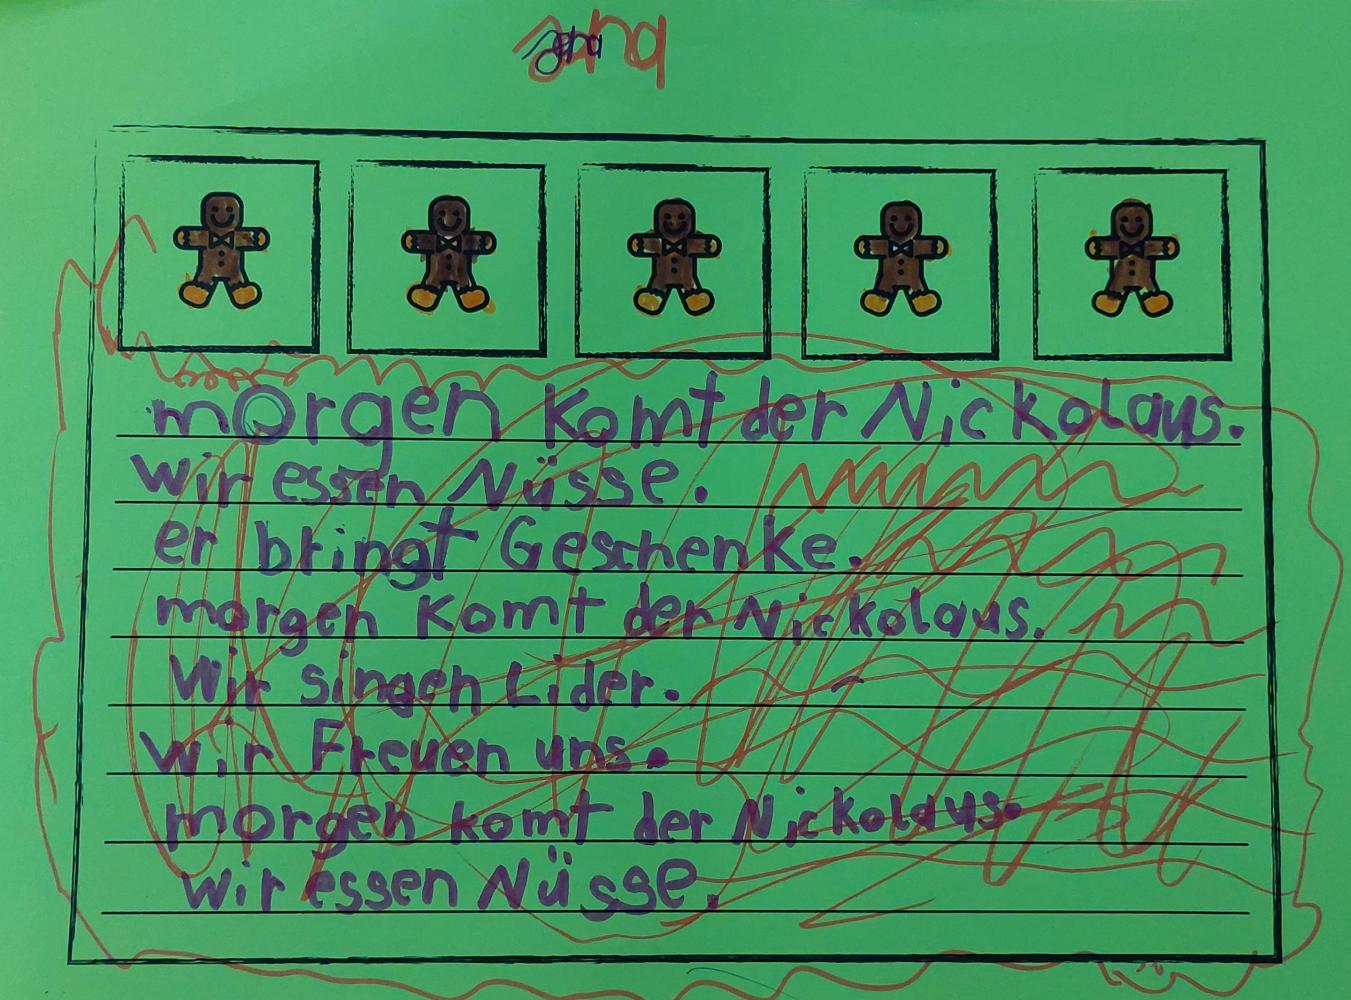 morgen komt der Nickolaus.
wir essen Nüsse.
er bringt Geschenke.
morgen komt der Nickolaus.
Wir singen Lider.
wir Freuen uns.
morgen komt der Nickolaus.
wir essen Nüsse.